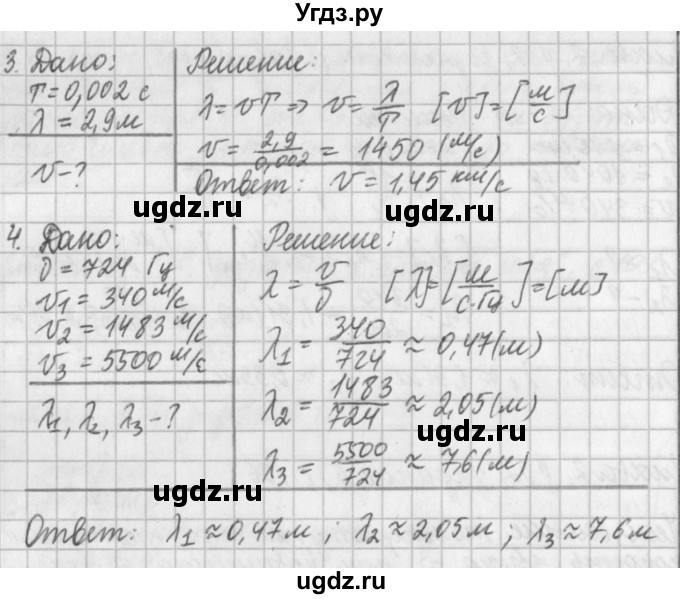 Угдз.ру
3. Дано:
T = 0,002 с
λ = 2,9м
v - ?
Решение:
λ = vT ⇒ v = λ/T [v] = [м/с]
v = 2,9/0,002 = 1450 (м/с)
Ответ: v = 1,45 км/с
ugdz.ru ugdz.ru
4. Дано:
υ = 724 Гц
v1 = 340 м/с
v2 = 1483 м/с
v3 = 5500 м/с
λ1, λ2, λ3 - ?
Решение:
λ = v/υ [λ] = [м/с·Гц] = [м]
λ1 = 340/724 ≈ 0,47(м)
λ2 = 1483/724 ≈ 2,05(м)
ugdz.ru
λ3 = 5500/724 ≈ 7,6(м)
ugdz.ru
Ответ: λ1 ≈ 0,47м; λ2 ≈ 2,05м; λ3 ≈ 7,6м
ugdz.ru